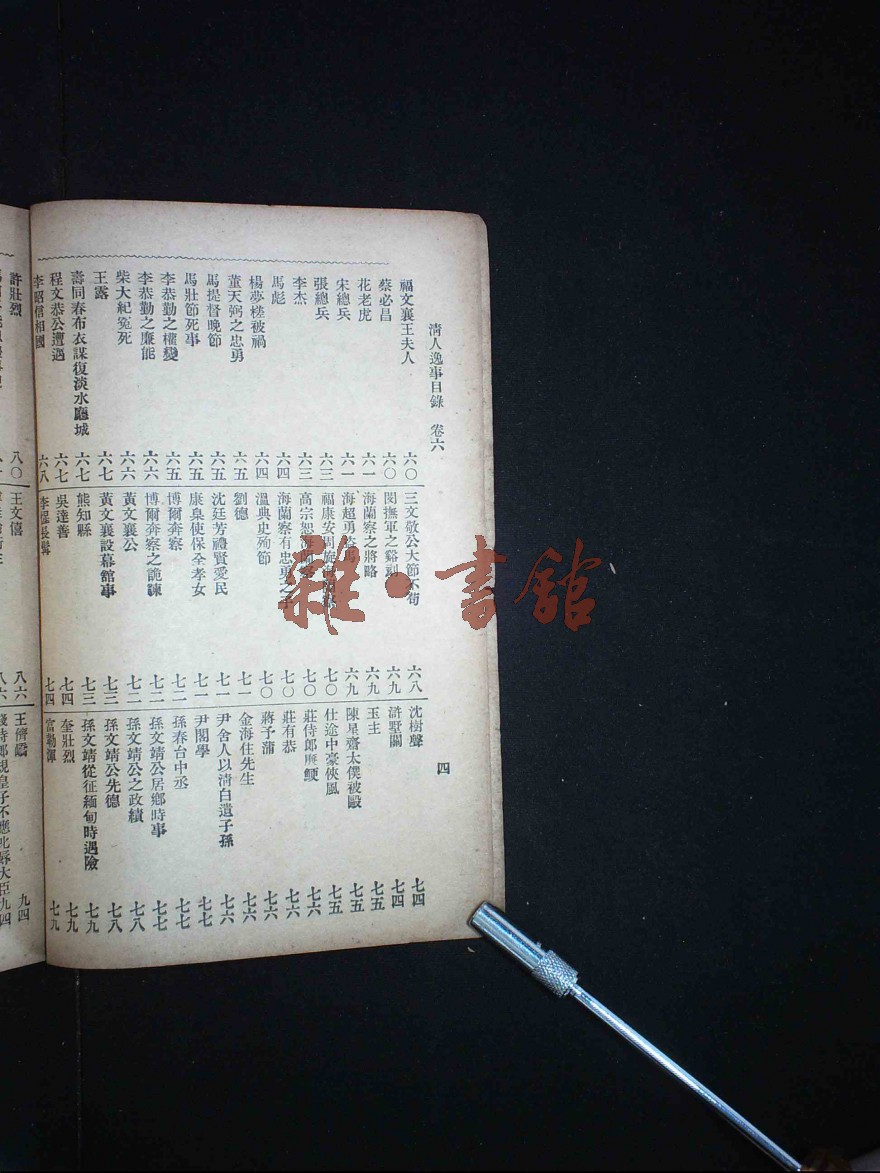 清人逸事目錄 卷六 四
福文襄王夫人 六〇
蔡必昌 六〇
花老虎 六一
宋總兵 六一
張總兵 六三
李杰 六三
馬彪 六四
楊夢槎被禍 六四
董天弼之忠勇 六五
馬提督晚節 六五
馬壯節死事 六五
李恭勤之權變 六五
李恭勤之廉能 六六
柴大紀冤死 六六
王露 六七
壽同春布衣謀復淡水廳城 六七
程文恭公遭遇 六七
李昭信相國 六八
三文敬公大節不苟 六八
閔撫軍之谿刻 六九
海蘭察之將略 六九
海超勇 六九
福康安周旋 七〇
高宗恕 七〇
海蘭察有忠勇之子 七〇
溫典史殉節 七〇
劉德 七一
沈廷芳禮賢愛民 七一
康臬使保全孝女 七一
博爾奔察 七二
博爾奔察之詭諫 七二
黃文襄公 七二
黃文襄設幕館事 七三
熊知縣 七三
吳達善 七四
長髯 七四
沈樹聲 七四
滸墅關 七四
玉主 七五
陳星齋太僕被毆 七五
仕途中豪俠風 七五
莊侍郎廉鯁 七六
莊有恭 七六
蔣予蒲 七六
金海住先生 七六
尹舍人以清白遺子孫 七六
尹閣學 七七
孫春台中丞 七七
孫文靖公居鄉時事 七七
孫文靖公之政績 七八
孫文靖公先德 七八
孫文靖從征緬甸時遇險 七九
奎壯烈 七九
富勒渾 七九
許壯烈 八〇
王文僖 八六
王儕嶠 九四
侍郎規皇子不應叱辱大臣 九四
雜·書館